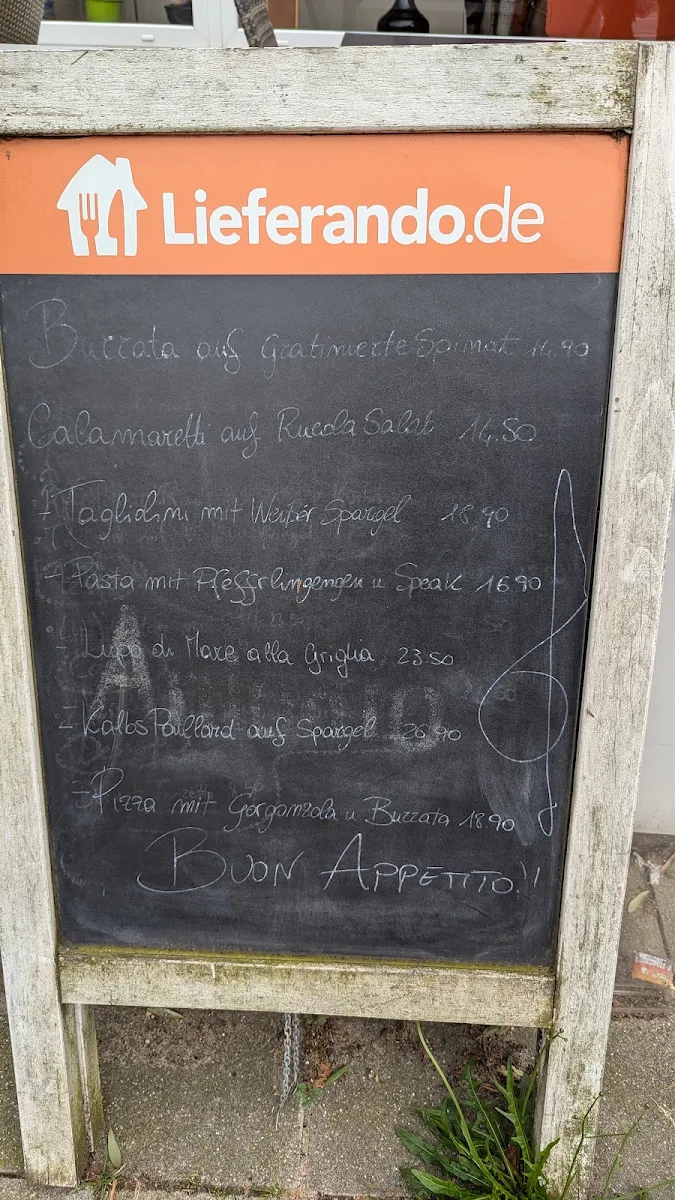 Lieferando.de
Burrata auf Gratinierte Spinat 14.90
Calamaretti auf Rucola Salat 14.50
- Tagliolini mit Weißer Spargel 18.90
- Pasta mit Pfeffrlingengen u Speak 16.90
- Lupo di Mare alla Griglia 23.50
- Kalbs Paillard auf Spargel 26.90
- Pizza mit Gorgonzola u Burrata 18.90
BUON APPETITO!!